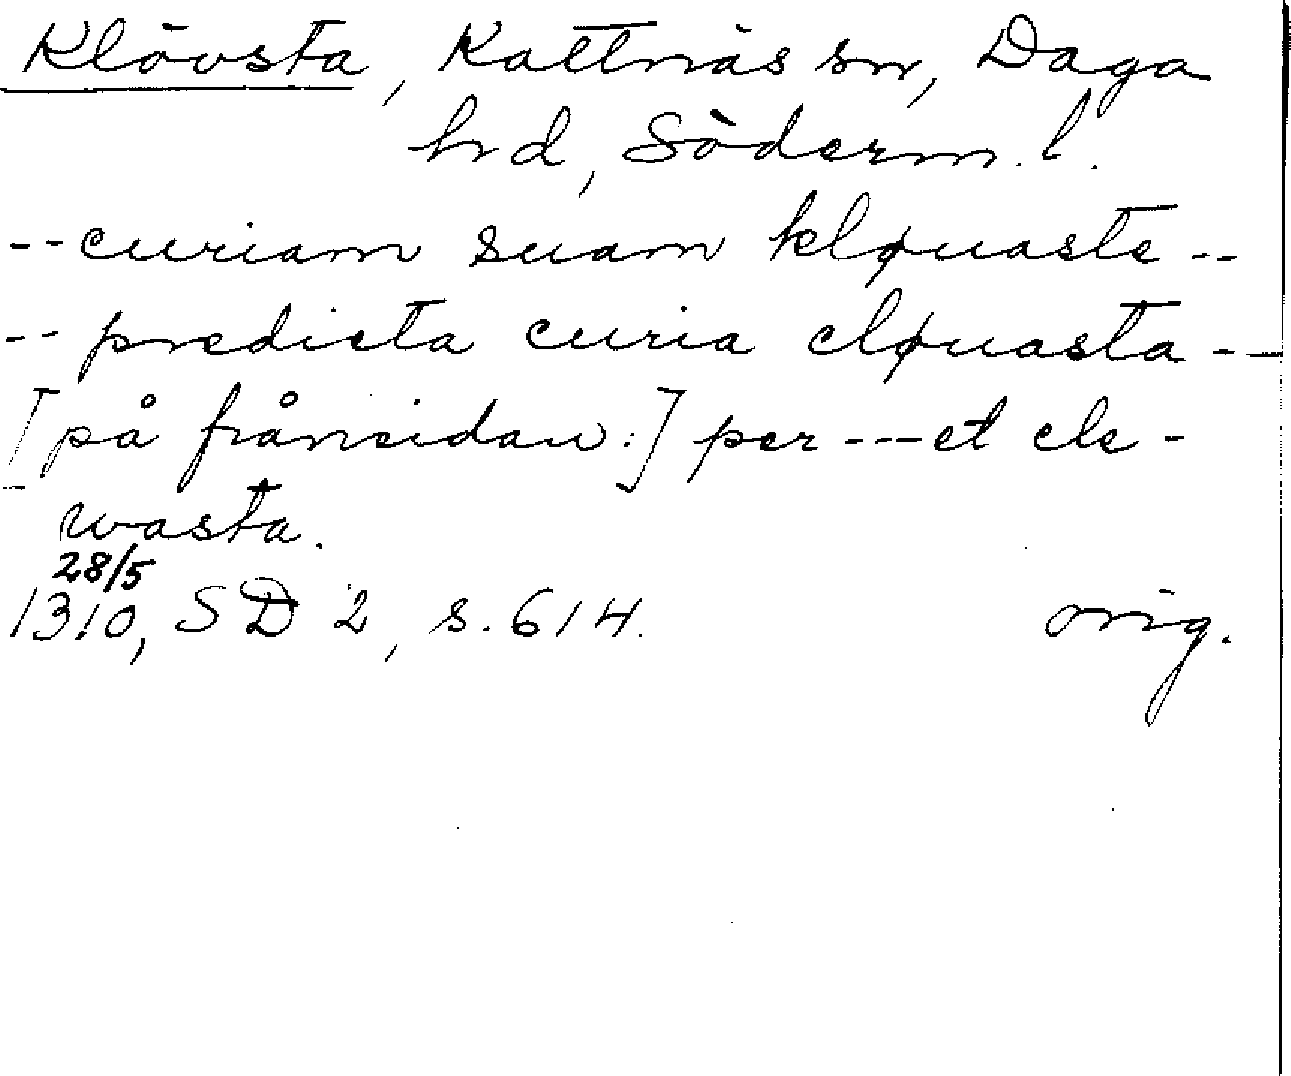 Klövsta, Kattnäs sn, Daga
hd, Söderm. l.
-- curiam suam kløuaste --
-- predicta curia cløuasta --
[på frånsidan:] per --- et cle-
wasta.
28/5
1310, SD 2, s. 614. orig.